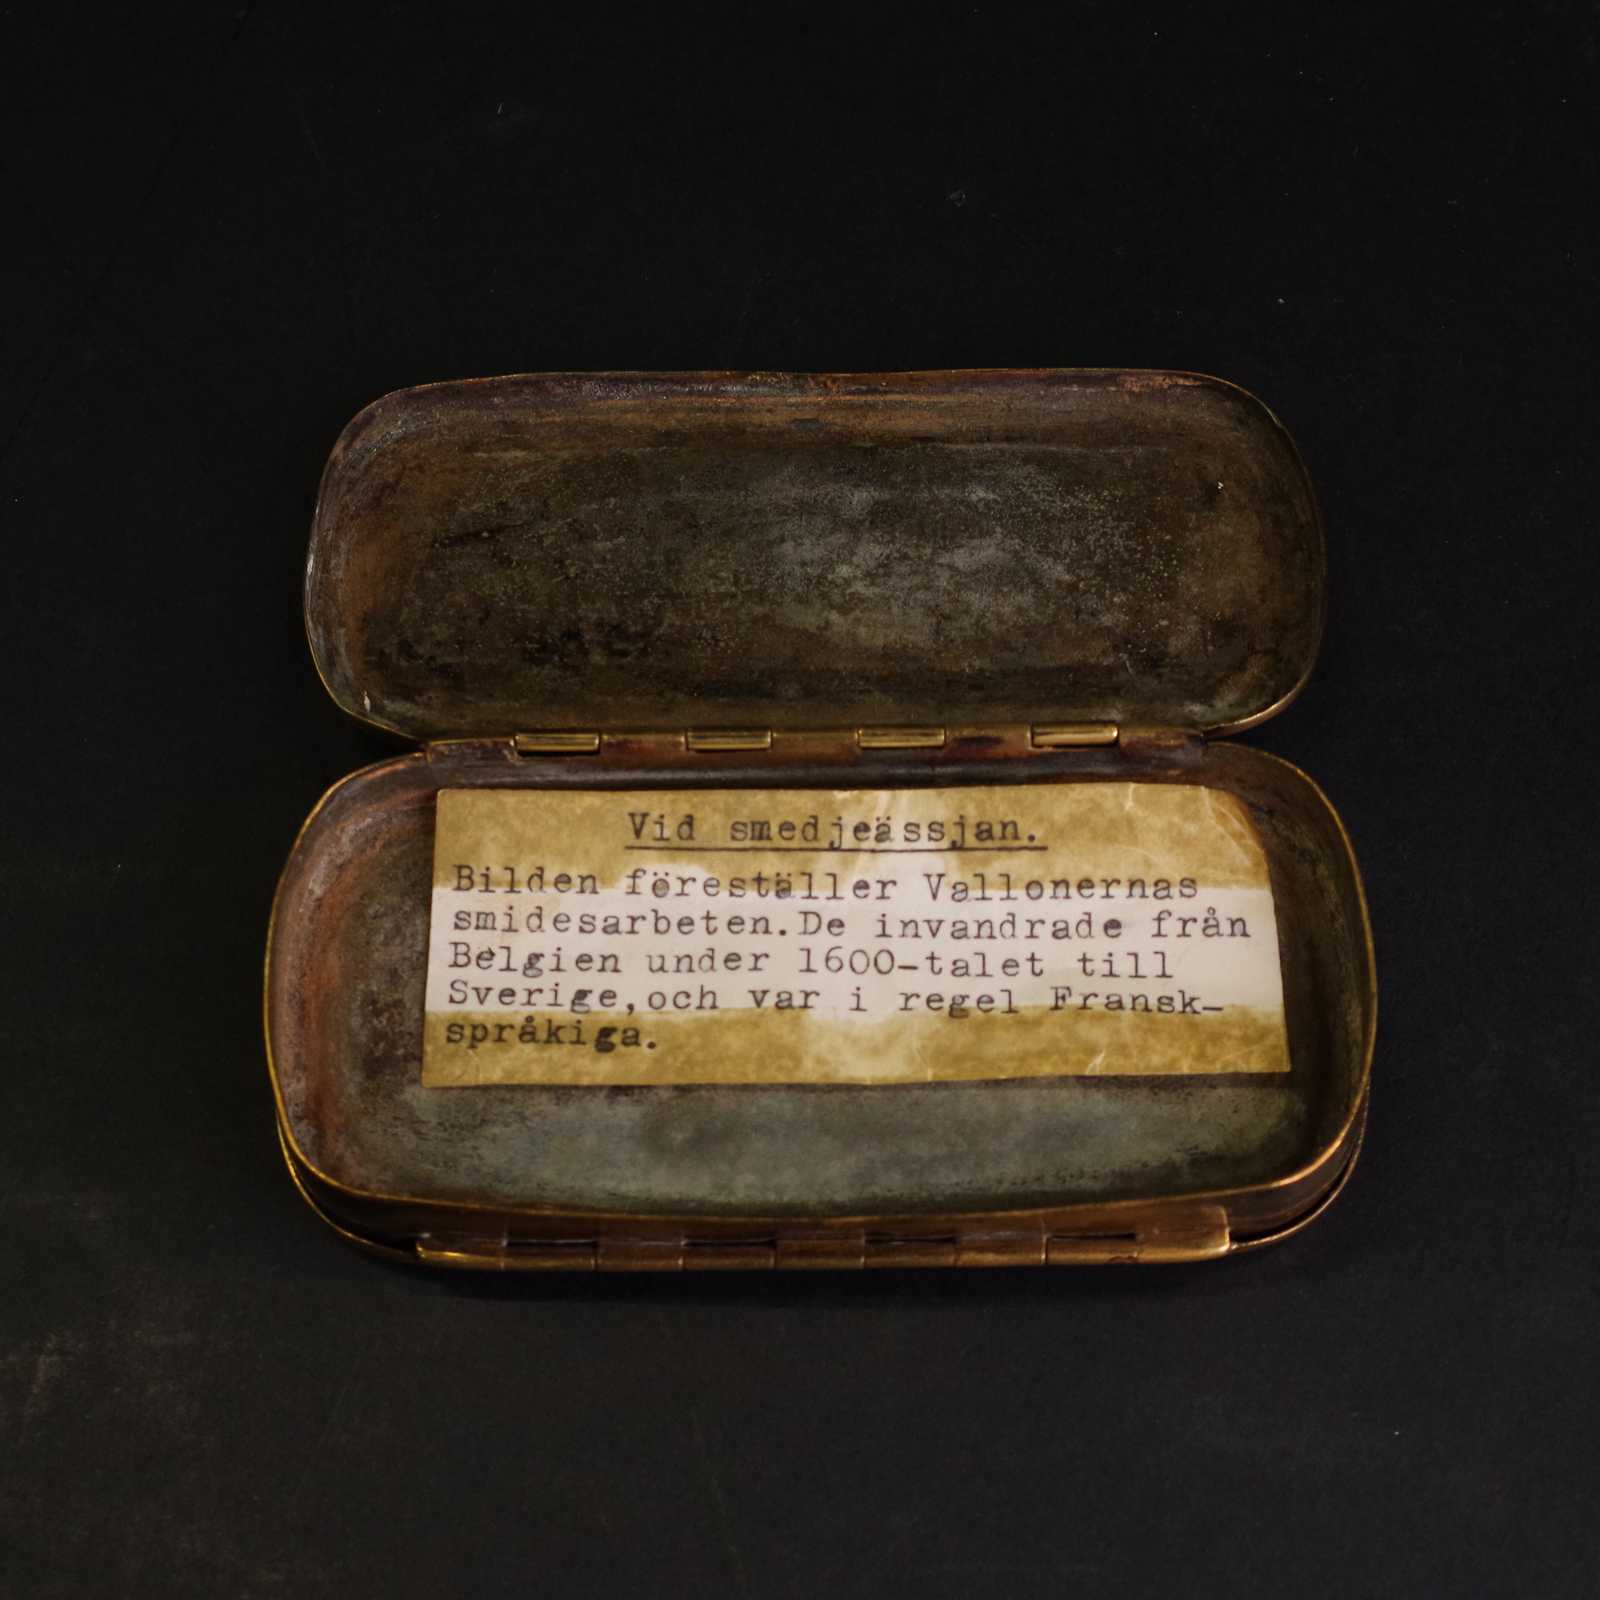 Vid smedjeässjan.
Bilden föreställer Vallonernas
smidesarbeten.De invandrade från
Belgien under 1600-talet till
Sverige,och var i regel Fransk-
språkiga.